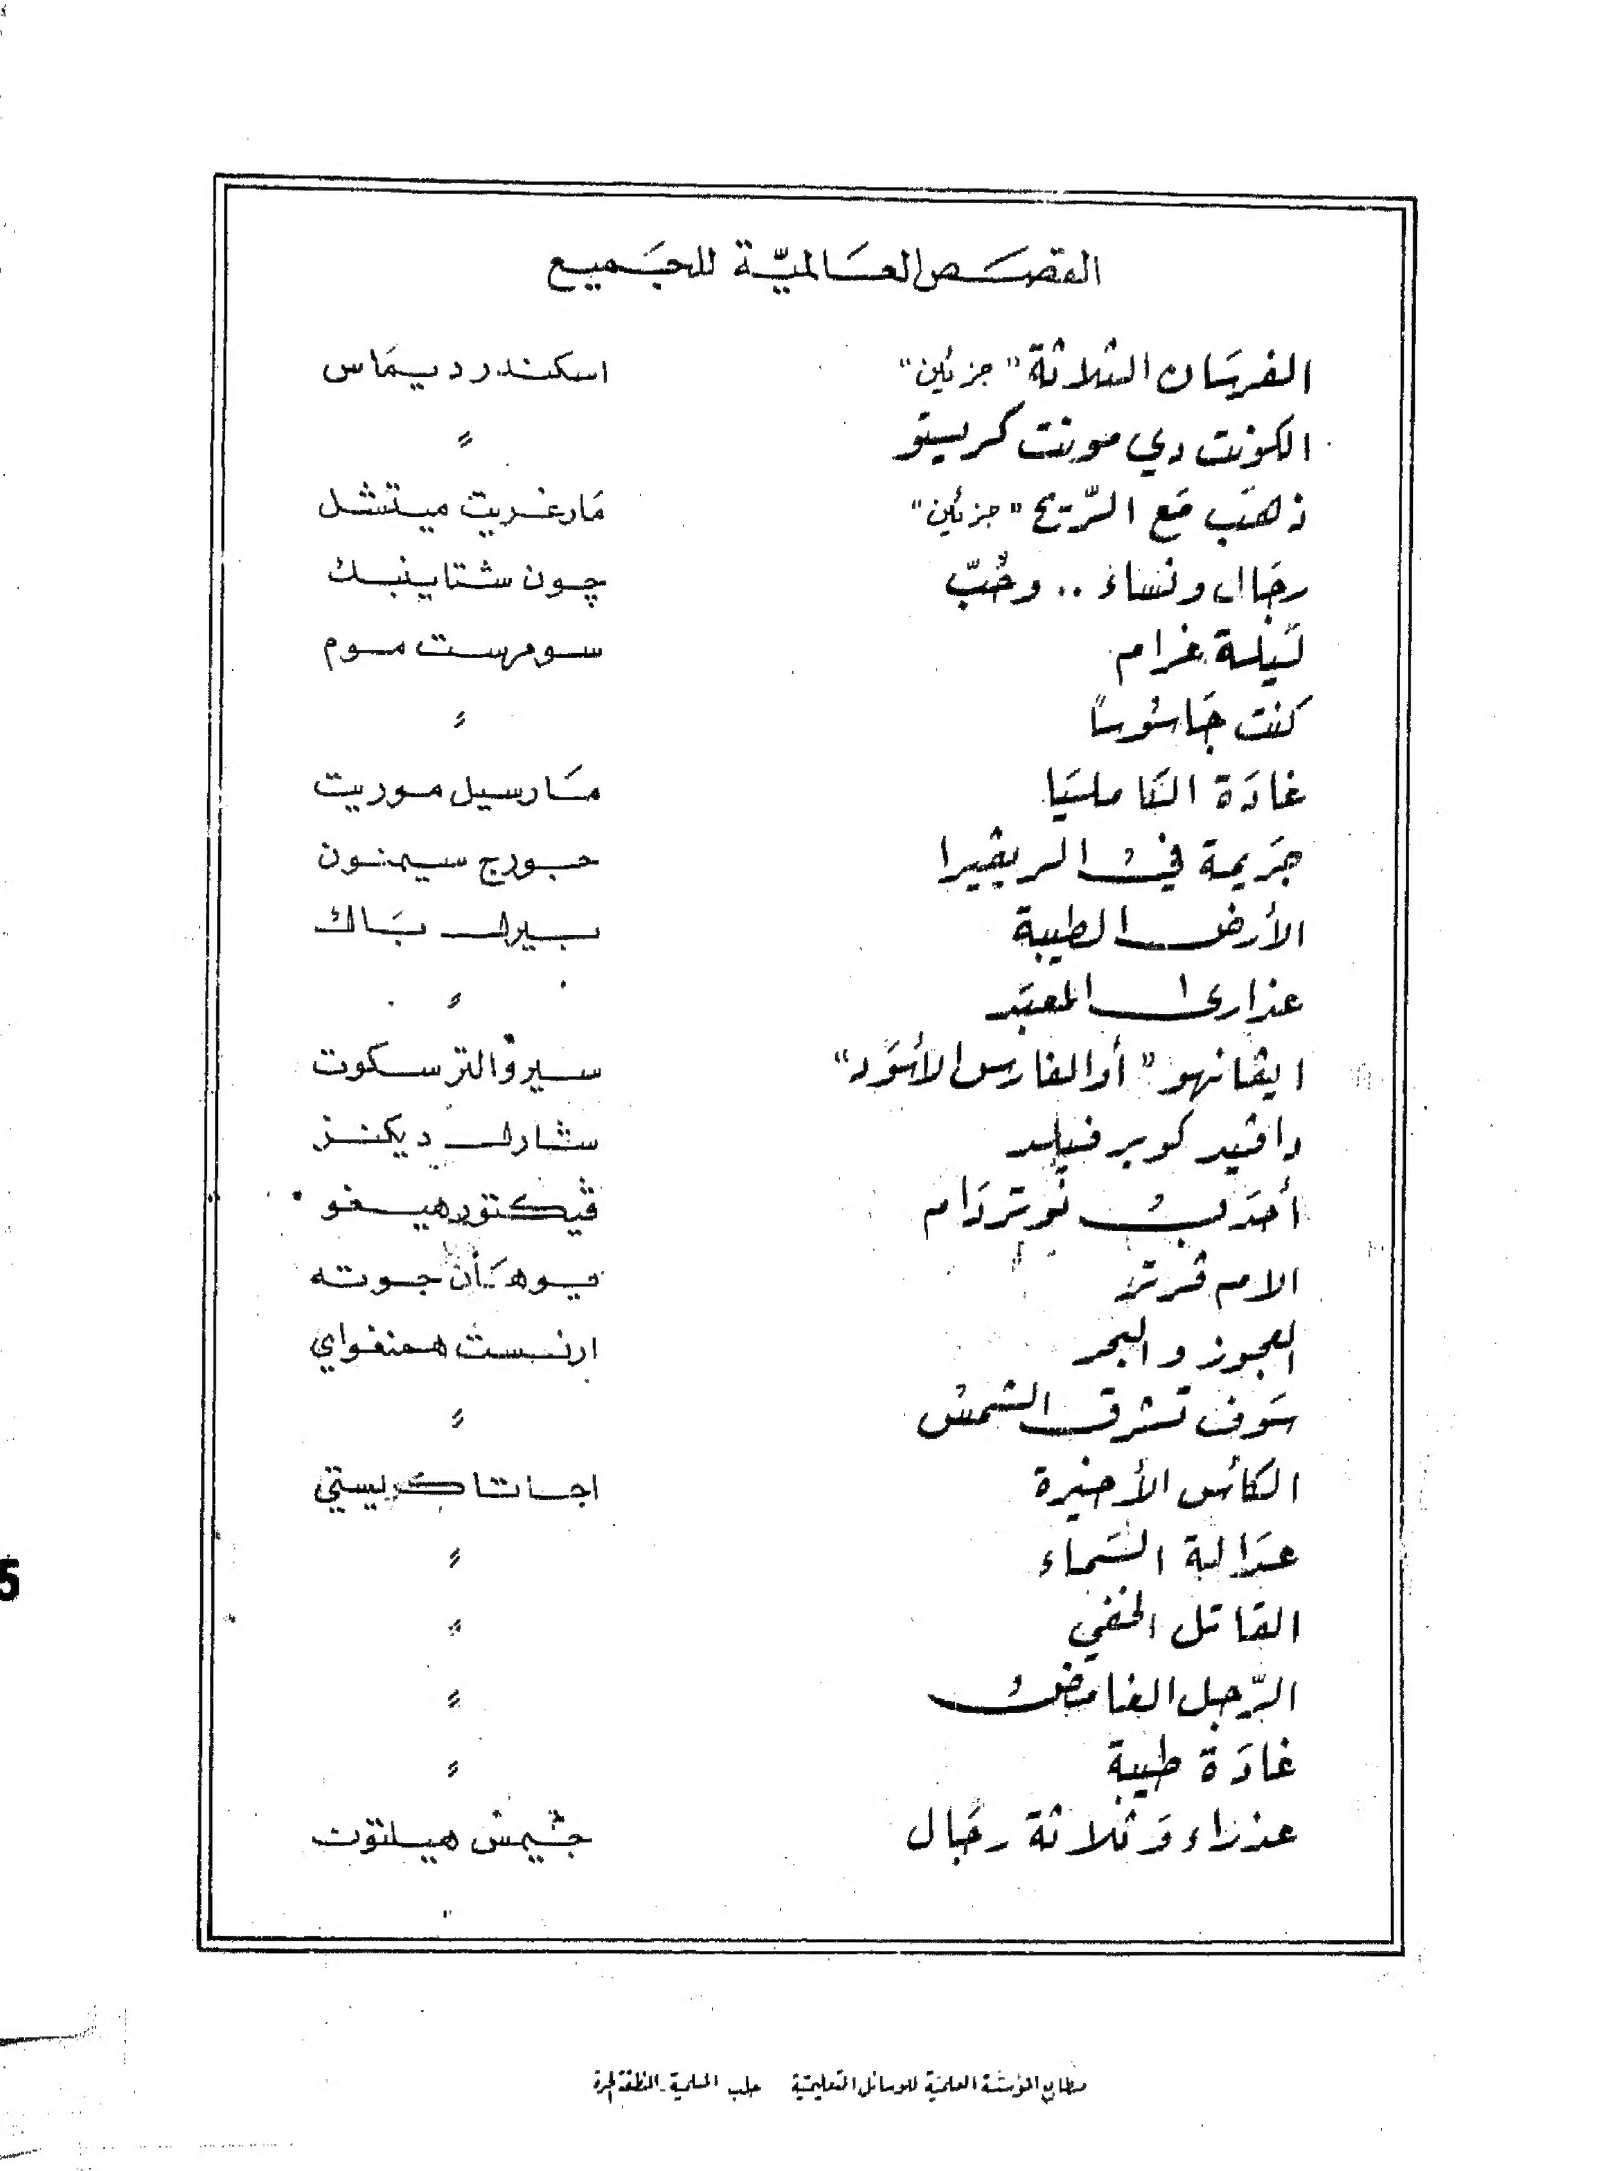 القصص العالمية للجميع
الفرسان الثلاثة "جزئين" اسكندر ديماس
الكونت دي مونت كريستو 〃
ذهب مع الريح "جزئين" مارغريت ميتشل
رجال ونساء .. وحُبّ چون شتاينبك
ليلة غرام سومرست موم
كنت جاسوساً 〃
غادة الكامليا مارسيل موريت
جريمة في الريڤيرا جورج سيمنون
الأرض الطيبة بيرل باك
عذارى المعبد 〃
ايڤانهو "أو الفارس الأسود" سير ڤالتر سكوت
داڤيد كوبرفيلد شارل ديكنز
أحدب نوتردام ڤيكتور هيغو
الام ڤرتر يوهان جوته
العجوز والبحر ارنست همنغواي
سوف تشرق الشمس 〃
الكأس الأخيرة اجاتا كريستي
عدالة السماء 〃
القاتل الخفي 〃
الرّجل الغامض 〃
غادة طيبة 〃
عذراء وثلاثة رجال هيلتون
مطابع المؤسسة العلمية للوسائل التعليمية حلب المسلمية - المنطقة الحرة
5